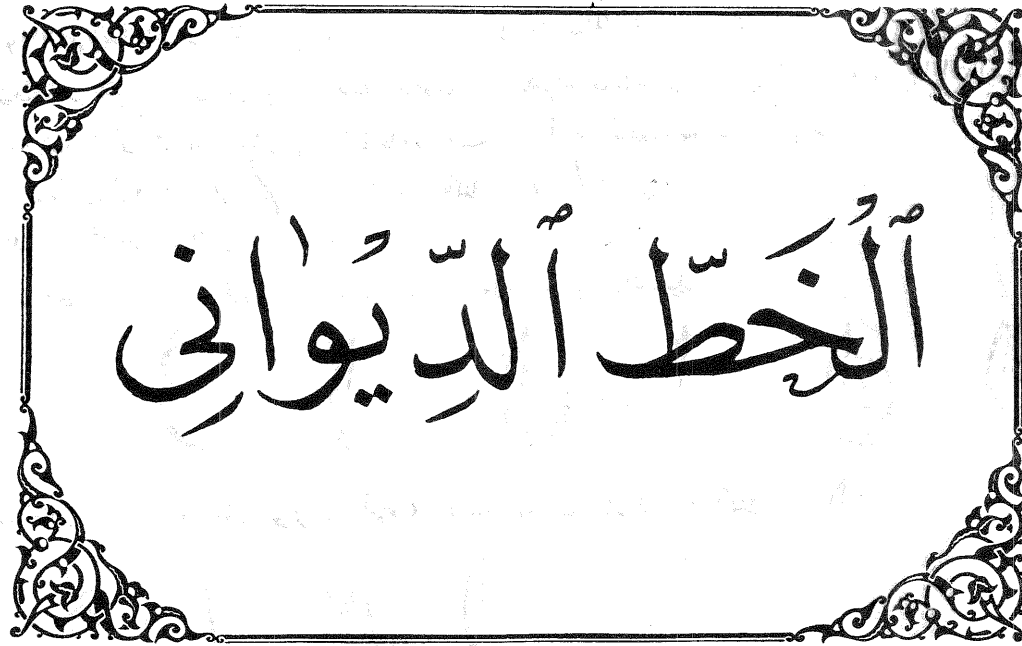 ٱلْخَطّ ٱلدِّيْوَانِى